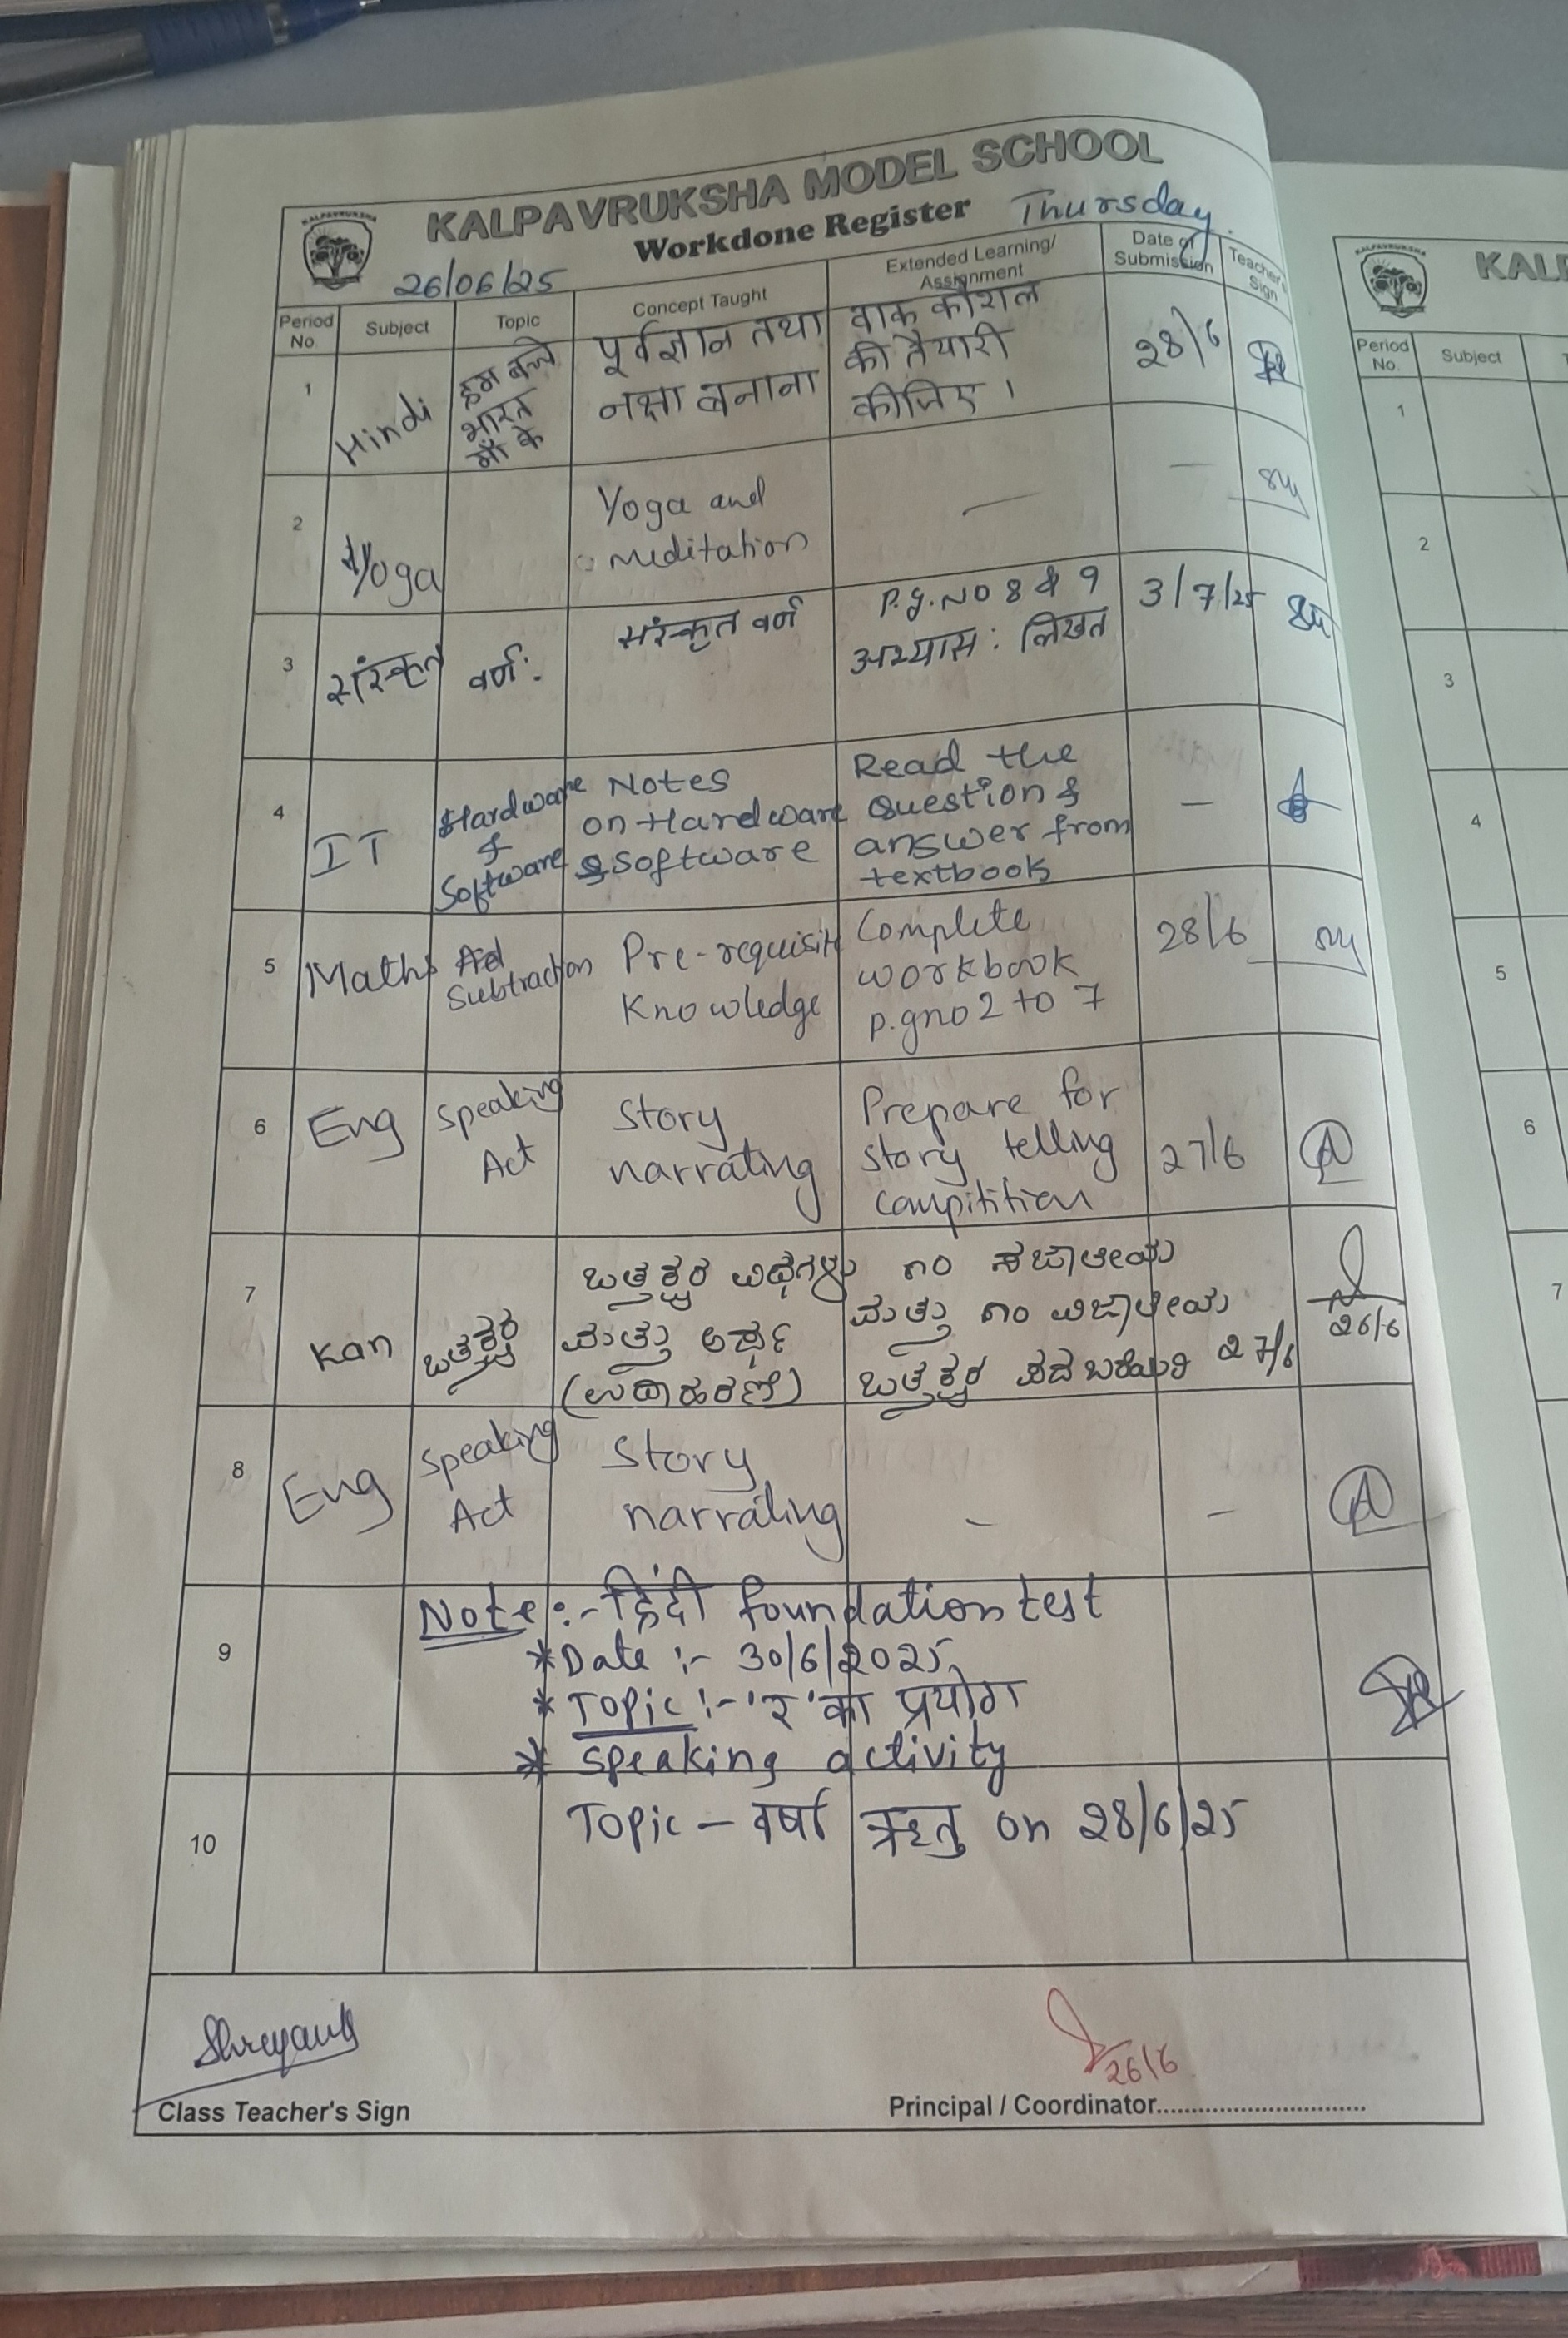 KALPAVRUKSHA
KALPAVRUKSHA MODEL SCHOOL
Workdone Register
Thursday
26/06/25
Period No.
Subject
Topic
Concept Taught
Extended Learning/ Assignment
Date of Submission
Teacher's Sign
1
Hindi
हम बच्चे
भारत
माँ के
पूर्वज्ञान तथा
नक्षा बनाना
वाक कौशल
की तैयारी
कीजिए।
28/6
2
Yoga
Yoga and
meditation
—
—
3
संस्कृत
वर्ण:
संस्कृत वर्ण
P.g.NO 8 & 9
अभ्यास: लिखत
3/7/25
4
IT
Hardware
&
Software
Notes
on Hardware
& Software
Read the
question &
answer from
textbook
—
5
Maths
Subtraction
Pre-requisite
Knowledge
Complete
workbook
p.gno 2 to 7
28/6
6
Eng
Speaking
Act
Story
narrating
Prepare for
story telling
compitition
27/6
7
Kan
ಒತ್ತಕ್ಷರ
ಒತ್ತಕ್ಷರ ವಿಧಗಳು
ಮತ್ತು ಅರ್ಥ
(ಉದಾಹರಣೆ)
೧೦ ಸಜಾತೀಯ
ಮತ್ತು ೧೦ ವಿಜಾತೀಯ
ಒತ್ತಕ್ಷರ ಪದ ಬರೆಯಿರಿ
27/6
26/6
8
Eng
Speaking
Act
Story
narrating
-
-
9
Note:- हिंदी foundation test
*Date :- 30/6/2025
* Topic :- 'र' का प्रयोग
* speaking activity
10
Topic – वर्षा ऋतु on 28/6/25
26/6
Class Teacher's Sign
Principal / Coordinator..............................
KALPAVRUKSHA
KAL
Period No.
Subject
1
2
3
4
5
6
7